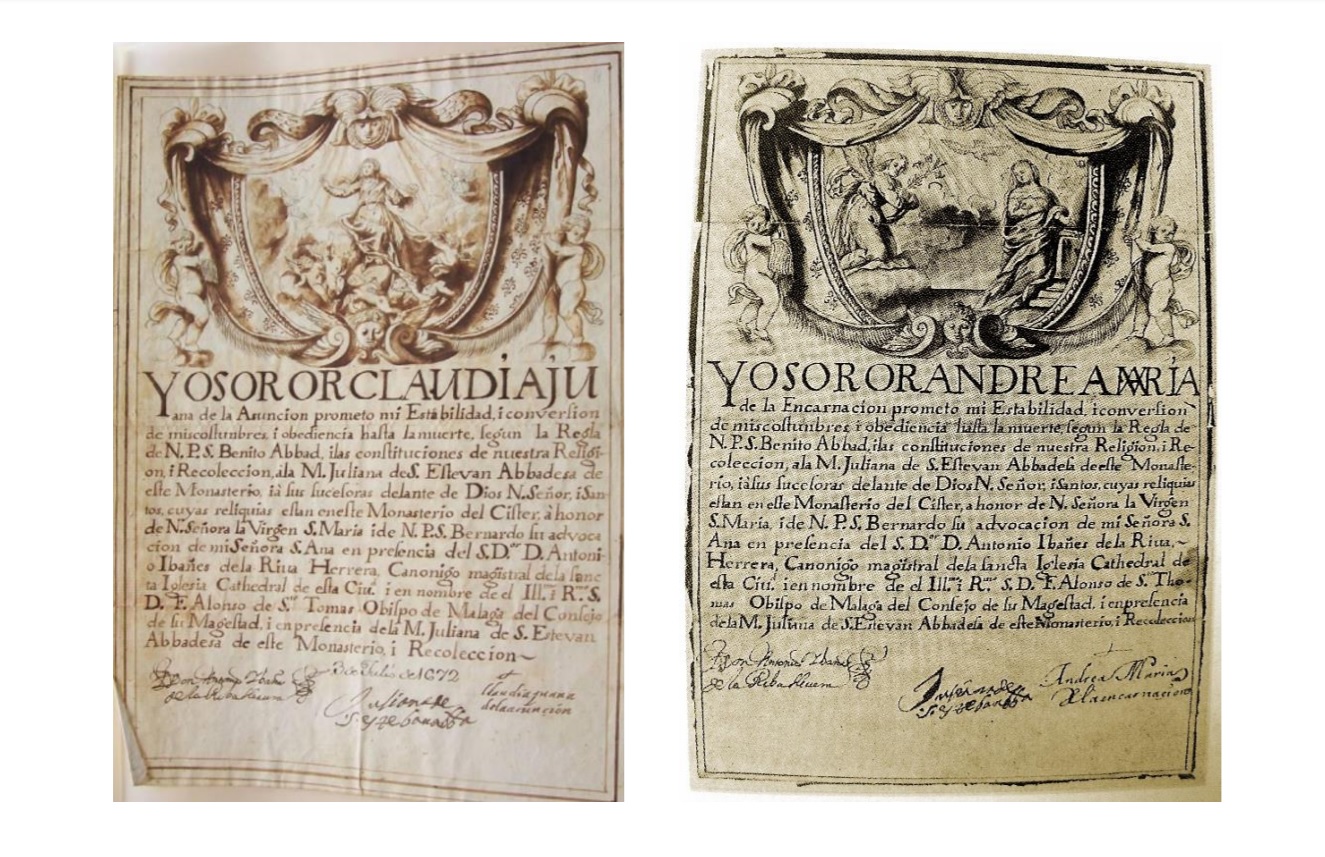 YO SOROR CLAUDIA JU
ana de la Asuncion prometo mi Estabilidad, i conversion
de miscostunbres, i obediencia hasta la muerte, segun la Regla
de N.P.S. Benito Abbad, ilas constituciones de nuestra Religi-
on, i Recoleccion, àla M. Juliana de S. Estevan Abbadesa de
este Monasterio, ià sus sucesoras delante de Dios N. Señor, i San-
tos, cuyas reliquias estan en este Monasterio del Cister, à honor
de N. Señora la Virgen S. Maria i de N. P. S. Bernardo su advoca
cion de mi Señora S. Ana en presencia del S.D.or D. Antoni-
o Ibañes de la Riua Herrera, Canonigo magistral de la sanc
ta Iglesia Cathedral de esta Ciu.d i en nombre de el Ill.mo i R.mo S.
D. F. Alonso de S.to Tomas Obispo de Malaga del Consejo
de su Magestad, i en presencia dela M. Juliana de S. Estevan
Abbadesa de este Monasterio, i Recoleccion~
3 de Julio de 1672
Don Antonio Ibañes
de la Riba Herrera
Juliana de
S. esteban abba
Claudia juana
de la asunción
YO SOROR ANDREA MARIA
de la Encarnacion prometo mi Estabilidad, i conversion
de miscostunbres i obediencia hasta la muerte, segun la Regla de
N. P. S. Benito Abbad, ilas constituciones de nuestra Religion, i Re-
coleccion, ala M. Juliana de S. Estevan Abbadesa de este Monaste-
rio, iàsus sucesoras delante de Dios N. Señor, i Santos, cuyas reliquias
estan en este Monasterio del Cister, a honor de N. Señora la Virgen
S. Maria, i de N. P. S. Bernardo su advocacion de mi Señora S.
Ana en presencia del S. D.or D. Antonio Ibañes de la Riua,~
Herrera, Canonigo magistral de la sancta Iglesia Cathedral de
esta Ciu.d i en nombre de el Ill.mo i R.mo S. D. F. Alonso de S. Tho-
mas Obispo de Malaga del Consejo de su Magestad, i en presencia
dela M. Juliana de S. Estevan Abbadesa de este Monasterio, i Recoleccion
Don Antonio Ibañes
de la Riba Herrera
Juliana de
S. esteban abba
Andrea Maria
de la encarnacion